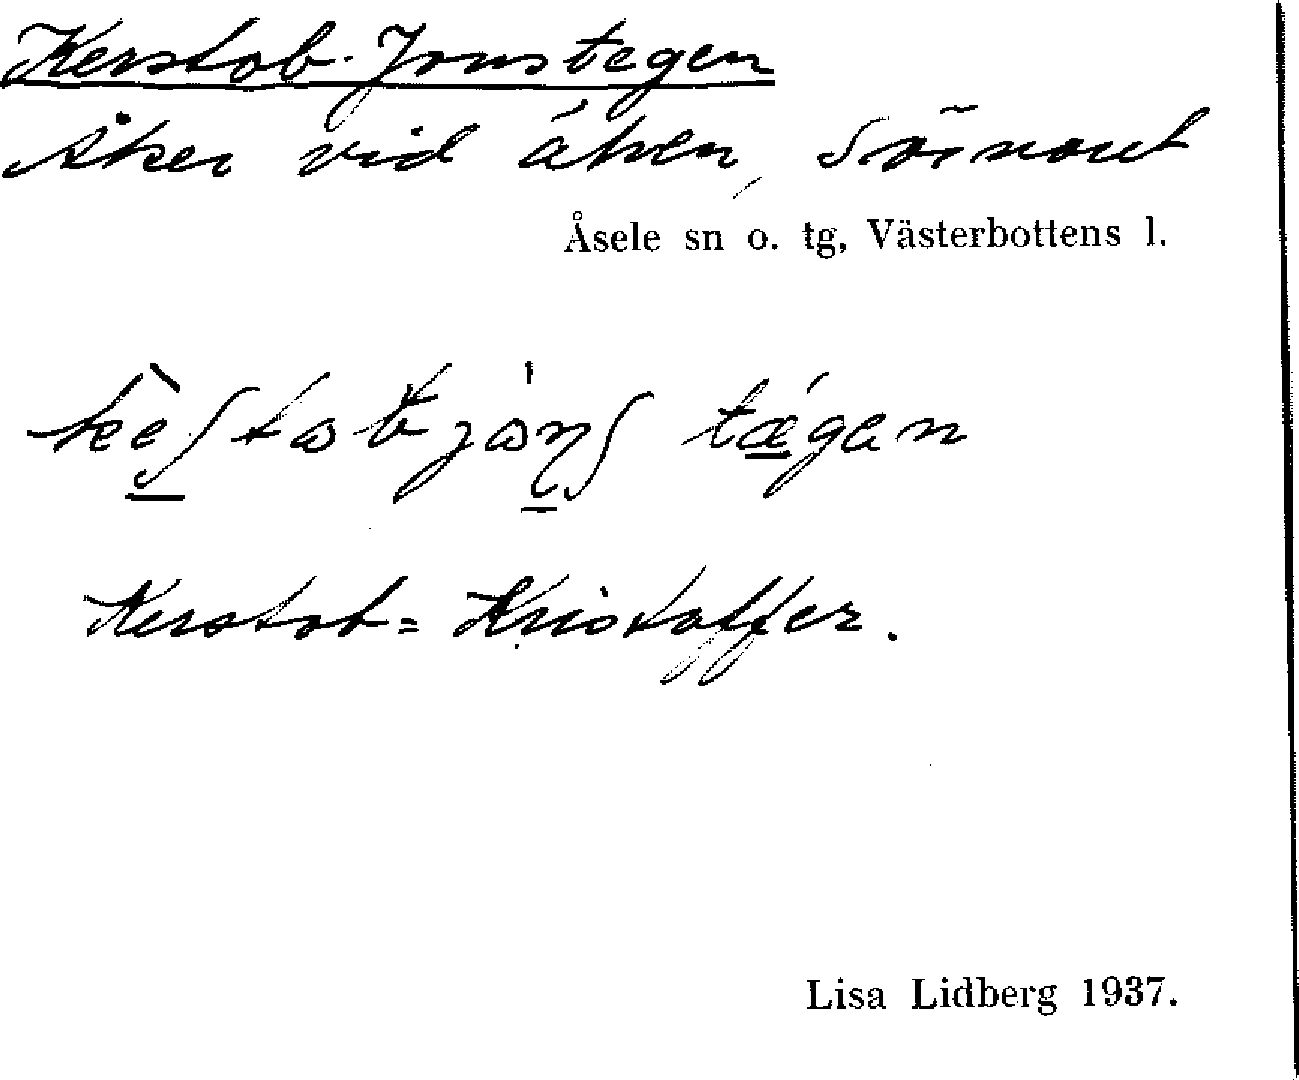 Kerstob-Jonstegen
Åker vid älven, Sörnoret
Åsele sn o. tg, Västerbottens l.
Kerstob = Kristoffer.
Lisa Lidberg 1937.